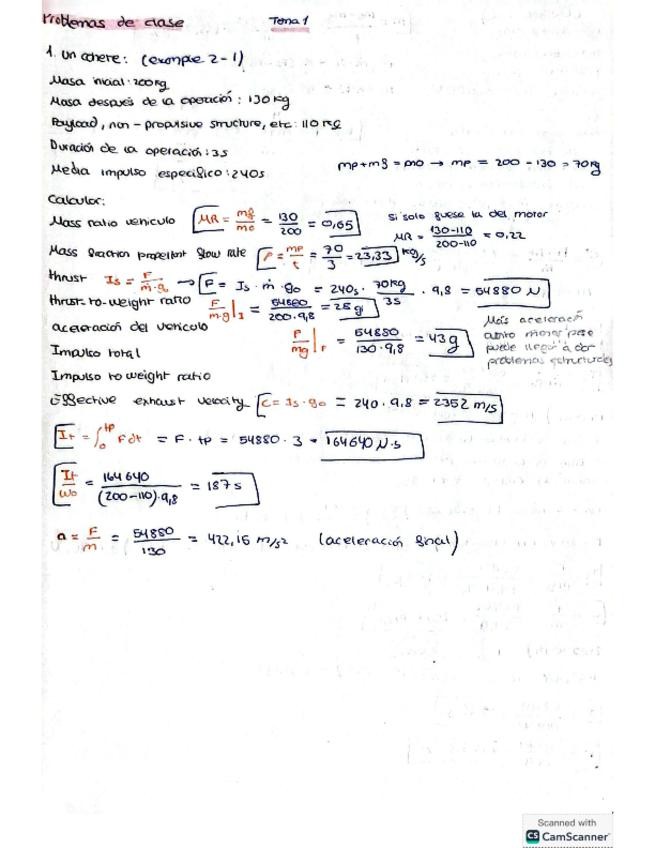 Problemas de clase Tema 1
1. Un cohete: (example 2-1)
Masa inicial: 200kg
Masa después de la operación: 130kg
Payload, non-propulsive structure, etc: 110kg
Duración de la operación: 3s
Media impulso específico: 240s
mp+mf = m0 → mp = 200 - 130 = 70kg
Calcular:
Mass ratio vehiculo MR = mf/m0 = 130/200 = 0,65
Si solo fuese la del motor
MR = 130-110/200-110 = 0,22
Mass fraction propellent flow rate = mp/t = 70/3 = 23,33 kg/s
thrust Is = F/ṁ·g0 → F = Is·ṁ·g0 = 240s · 70kg/3s · 9,8 = 54880 N
thrust-to-weight ratio F/m·g| = 54880/200·9,8 = 28g
aceleración del vehiculo F/mg|F = 54880/130·9,8 = 43g
Más aceleración
puede
problemas estructurales
Impulso total
Impulso to weight ratio
Effective exhaust velocity C = Is·g0 = 240·9,8 = 2352 m/s
It = ∫0^tp Fdt = F·tp = 54880·3 = 164640 N·s
It/w0 = 164640/(200-110)·9,8 = 187s
a = F/m = 54880/130 = 422,15 m/s² (aceleración final)
Scanned with
CS CamScanner